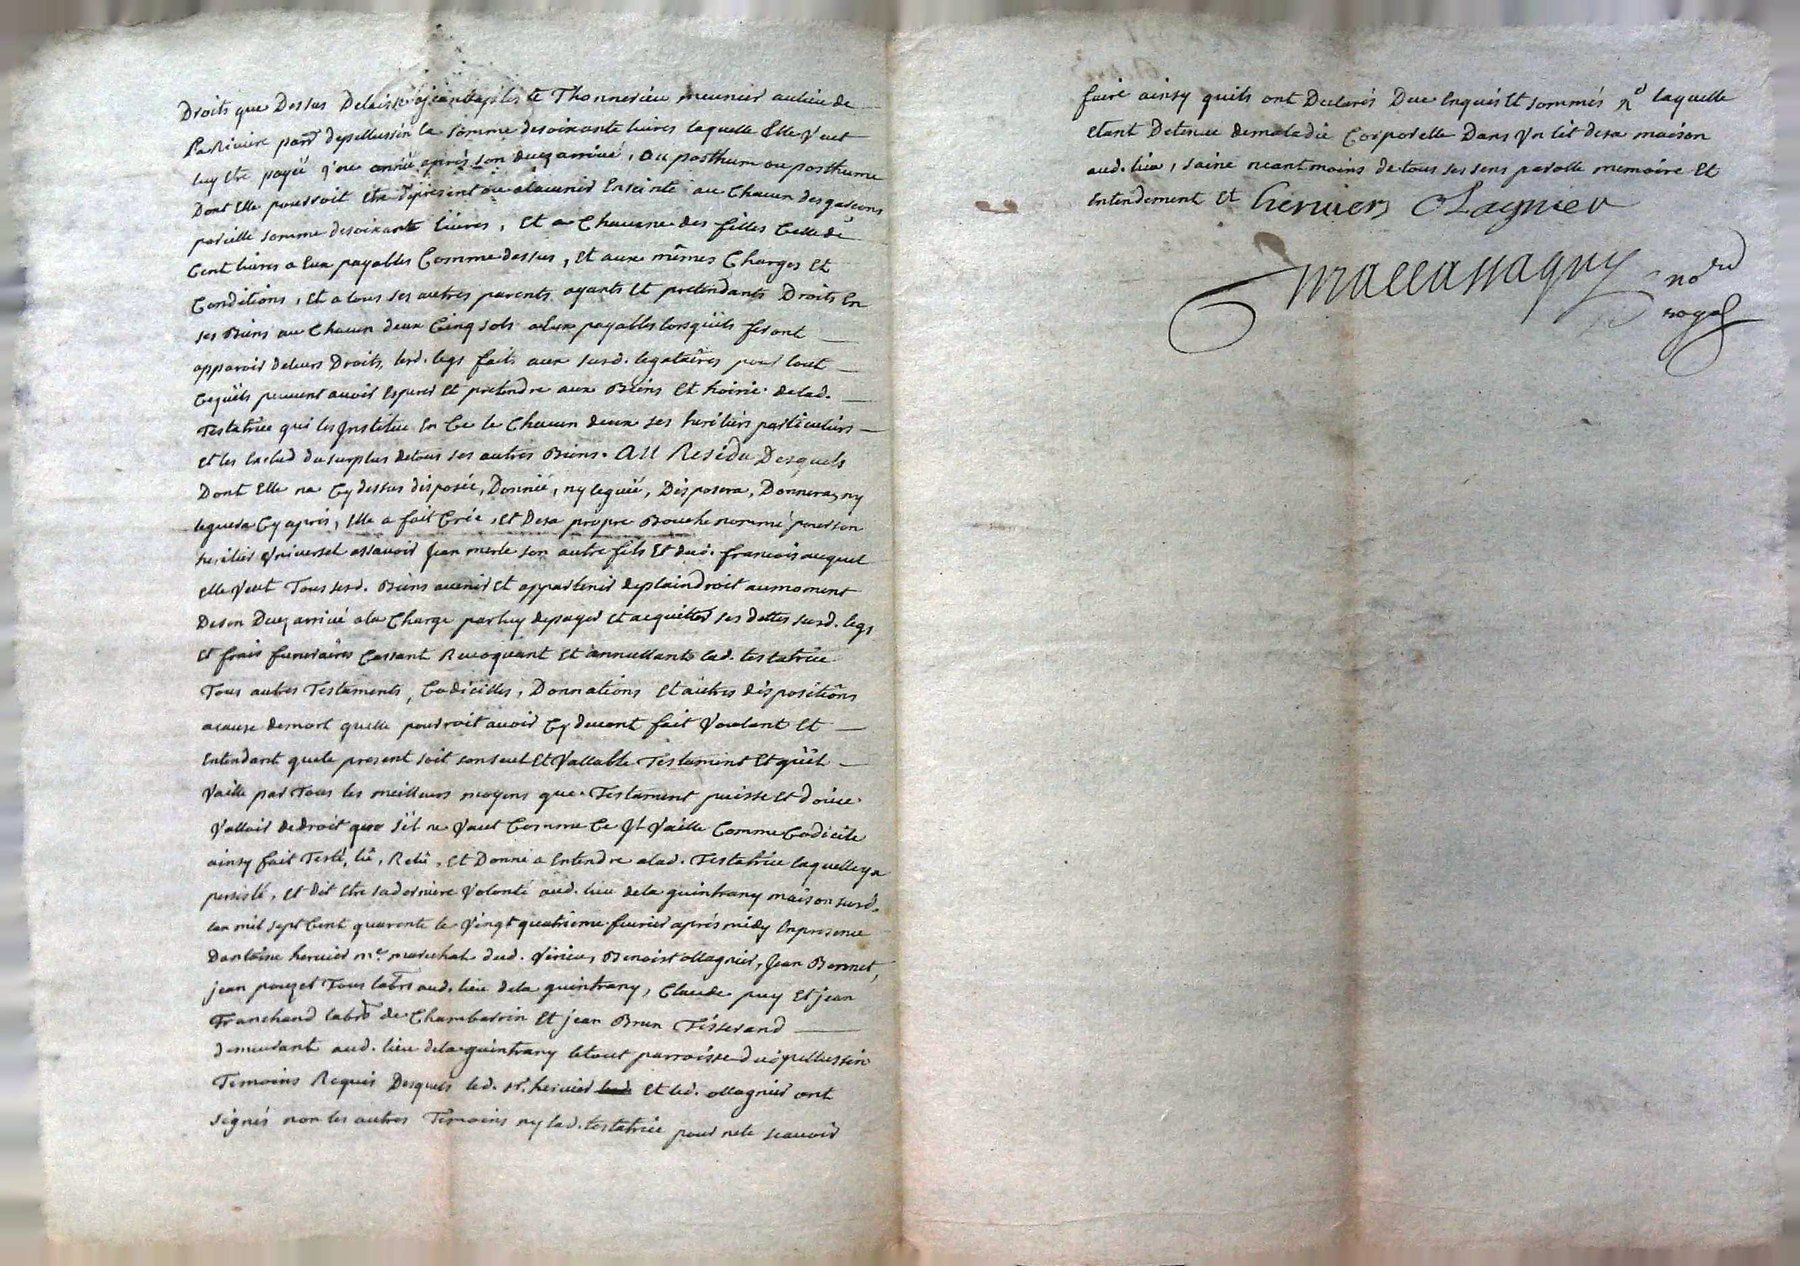 Droits que Dessus Delaisse a jean baptiste Thonnerieu meunier au lieu de
La Riviere parr.e de pellussin la somme de soixante livres laquelle Elle veut
luy Etre payée q'une année après son decez arrivé, au posthume ou posthume
Dont Elle pourroit etre apresent ou alavenir Enceinte au Chacun des garcons
pareille somme de soixante livres, Et a Chacune des filles Celle de
Cent livres a Eux payables Comme dessus, Et aux mêmes Charges Et
Conditions, Et a tous ses autres parents ayants Et pretendants Droits En
ses Biens au Chacun deux Cinq sols a Eux payables lorsquils feront
apparoir de leurs Droits, lesd. legs faits aux susd. legataires pour tout
Cequils peuvent avoir Esperer Et pretendre aux Biens Et hoirie de lad.
Testatrice qui les Institue En Ce le Chacun deux ses heritiers particuliers
Et les Exclud du surplus de tous ses autres Biens. AU Residu Desquels
Dont Elle na Cy dessus disposée, Donnée, ny leguée, Disposera, Donnera, ny
leguera Cy après, Elle a fait Crée, Et De sa propre Bouche nommé pour son
heritier Universel assavoir Jean merle son autre fils Et dud. francois auquel
elle veut Tous sesd. Biens avenir Et appartenir de plain droit au moment
De son Decez arrivé a la Charge par luy de payer Et acquitter ses dettes susd. legs
Et frais funeraires Cassant Revoquant Et annullant lad. testatrice
Tous autres Testaments, Codicilles, Donnations Et autres dispositions
acause de mort quelle pourroit avoir Cy devant fait Voulant Et
Entendant que le present soit son seul Et Vallable Testament Et quil
Vaille par Tous les meilleurs moyens que Testament puisse Et doive
Valloir de droit que S'il ne Vaut Comme Ce Il Vaille Comme Codicile
ainsy fait Testé, lû, Relû, Et Donné a Entendre a lad. Testatrice laquelle y a
persisté, Et dit Etre sa derniere Volonté aud. lieu de la guintrany maison susd.
Lan mil sept Cent quarente le Vingt quatrieme fevrier après midy En presence
D'antoine hervier m.e marechal dud. Virieu, Benoist ollagnier, Jean Bonnet,
jean pouzet Tous lab.rs aud. lieu de la guintrany, Claude puy Et jean
Tranchand lab.rs de Chambarvin Et jean Brun Tisserand
demeurant aud. lieu de la guintrany le tout parroisse dud. pellussin
Temoins Requis Desquels led. s.r hervier Et led. ollagnier ont
Signés non les autres Temoins ny lad. testatrice pour ne le scavoir
faire ainsy quils ont Declarés Due Enquis Et sommés laquelle
Etant Detenue de maladie Corporelle Dans Un lit de sa maison
aud. lieu, saine neantmoins de tous ses sens parolle memoire Et
Entendement Et herviers OLagnier
Mallassagny no.re
royal